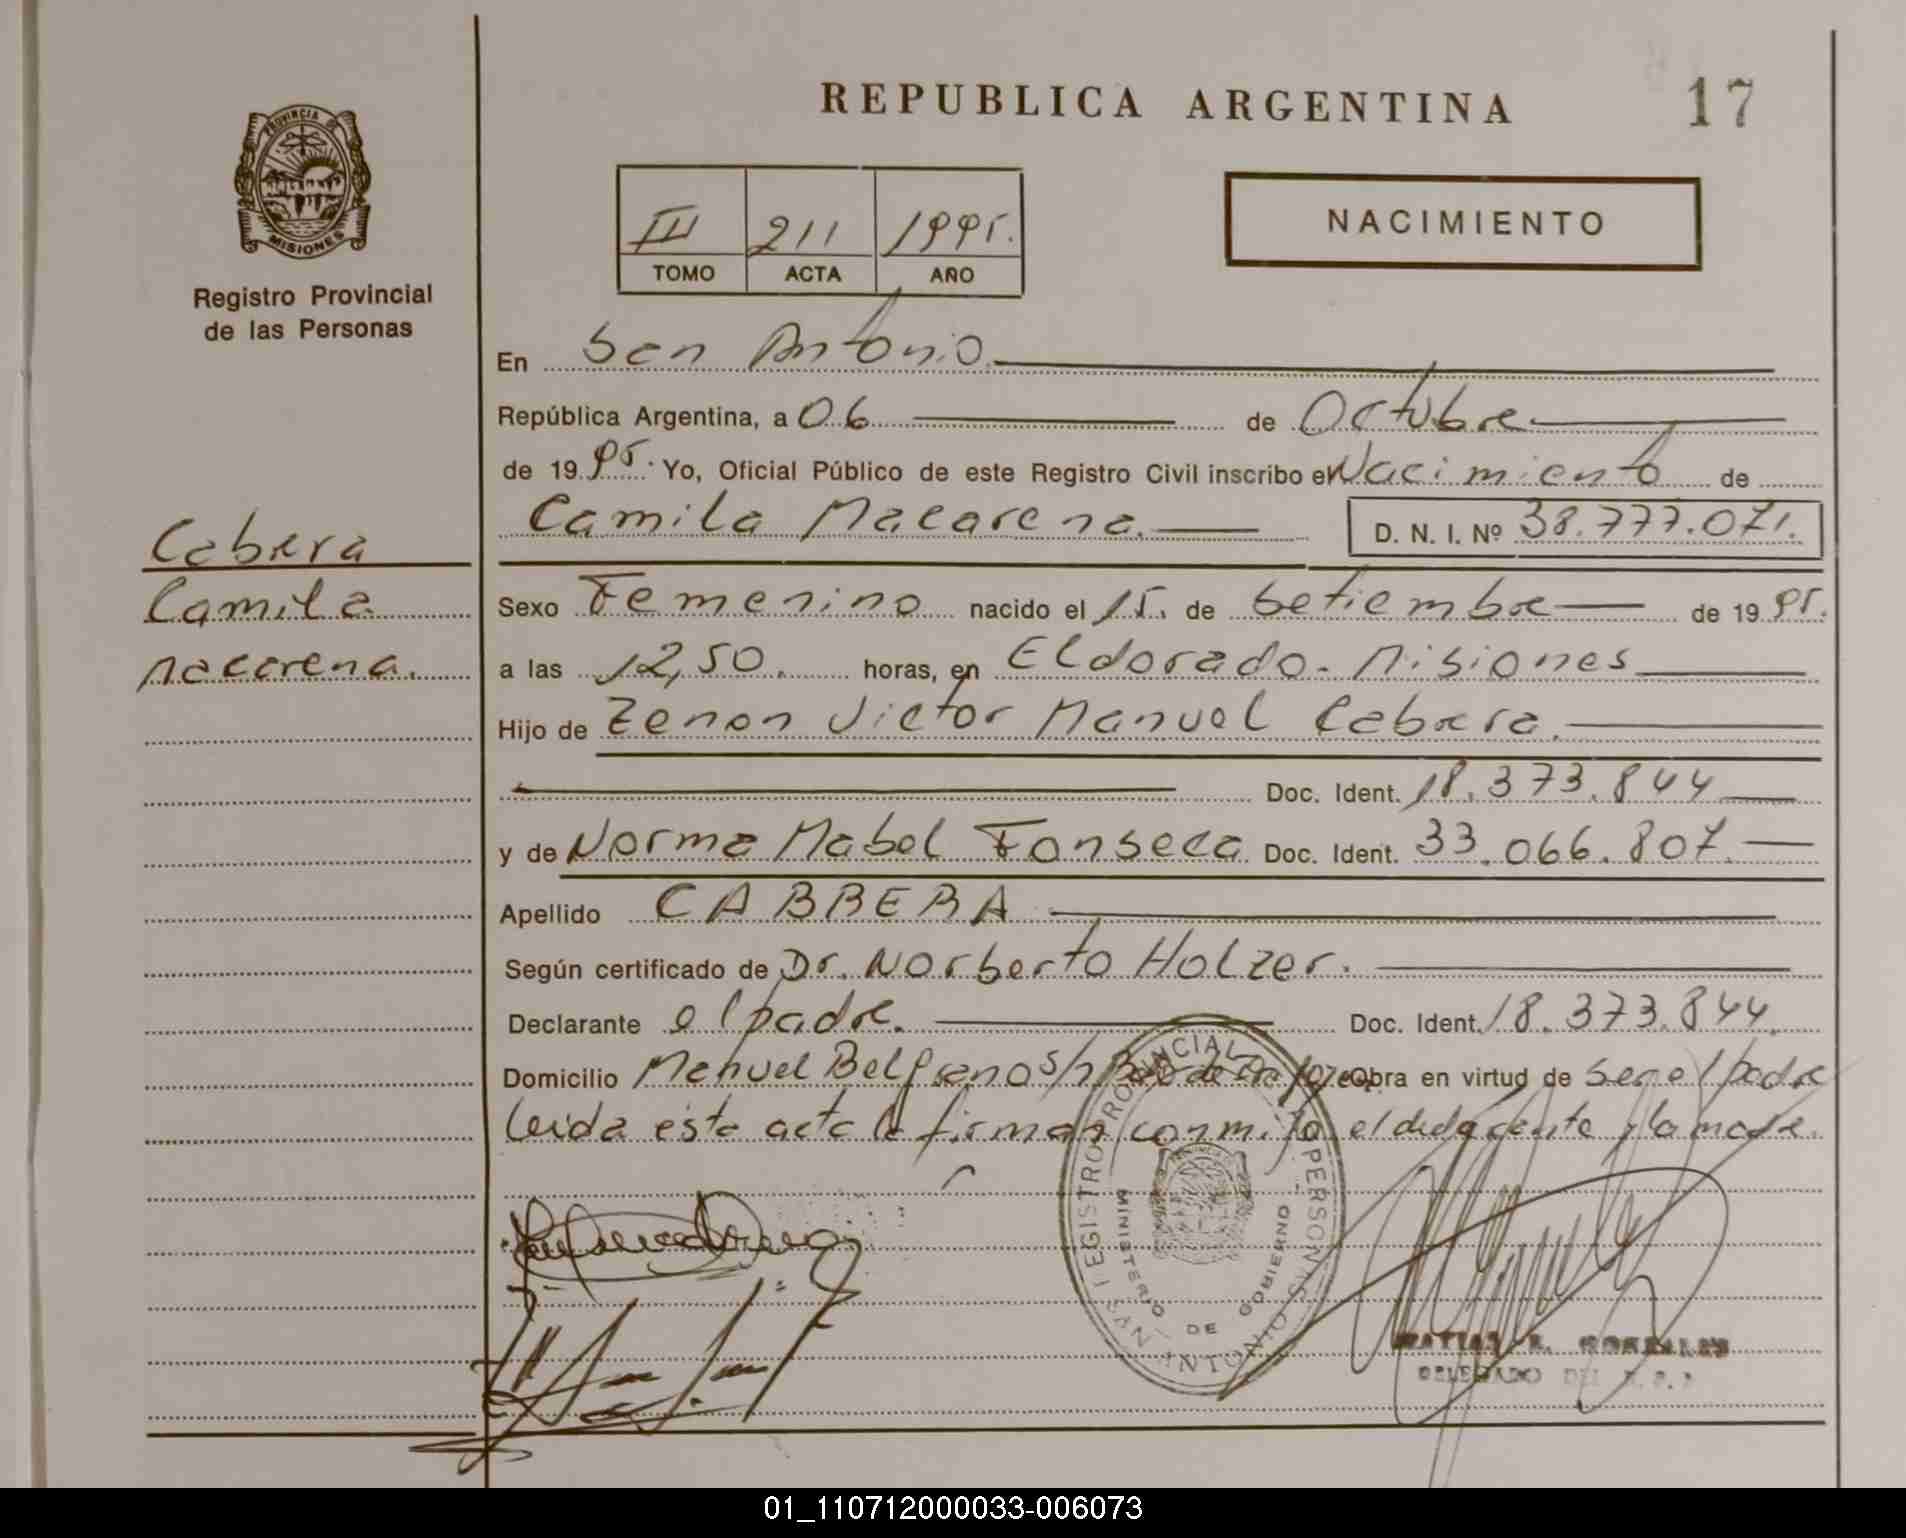 REPUBLICA ARGENTINA
17
PROVINCIA DE
MISIONES
Registro Provincial
de las Personas
III 211 1995.
TOMO ACTA AÑO
NACIMIENTO
En San Antonio.
República Argentina, a 06 de Octubre
de 19 95. Yo, Oficial Público de este Registro Civil inscribo el Nacimiento de
Camila Macarena. D. N. I. Nº 38.777.071.
Cabrera
Camila
Macarena.
Sexo Femenino nacido el 15. de Setiembre de 19 95.
a las 12,50. horas, en Eldorado - Misiones
Hijo de Zenon Victor Manuel Cabrera.
Doc. Ident. 18.373.844
y de Norma Mabel Fonseca Doc. Ident. 33.066.807.
Apellido CABRERA
Según certificado de Dr. Norberto Holzer.
Declarante el padre. Doc. Ident. 18.373.844.
Domicilio Manuel Belgrano S/n Obra en virtud de ser el padre
leida esta acta la firman conmigo el y la madre.
REGISTRO PROVINCIAL DE LAS PERSONAS
MINISTERIO DE GOBIERNO
SAN ANTONIO
MATIAS R. GONZALEZ
DELEGADO DEL R. P.
01_110712000033-006073